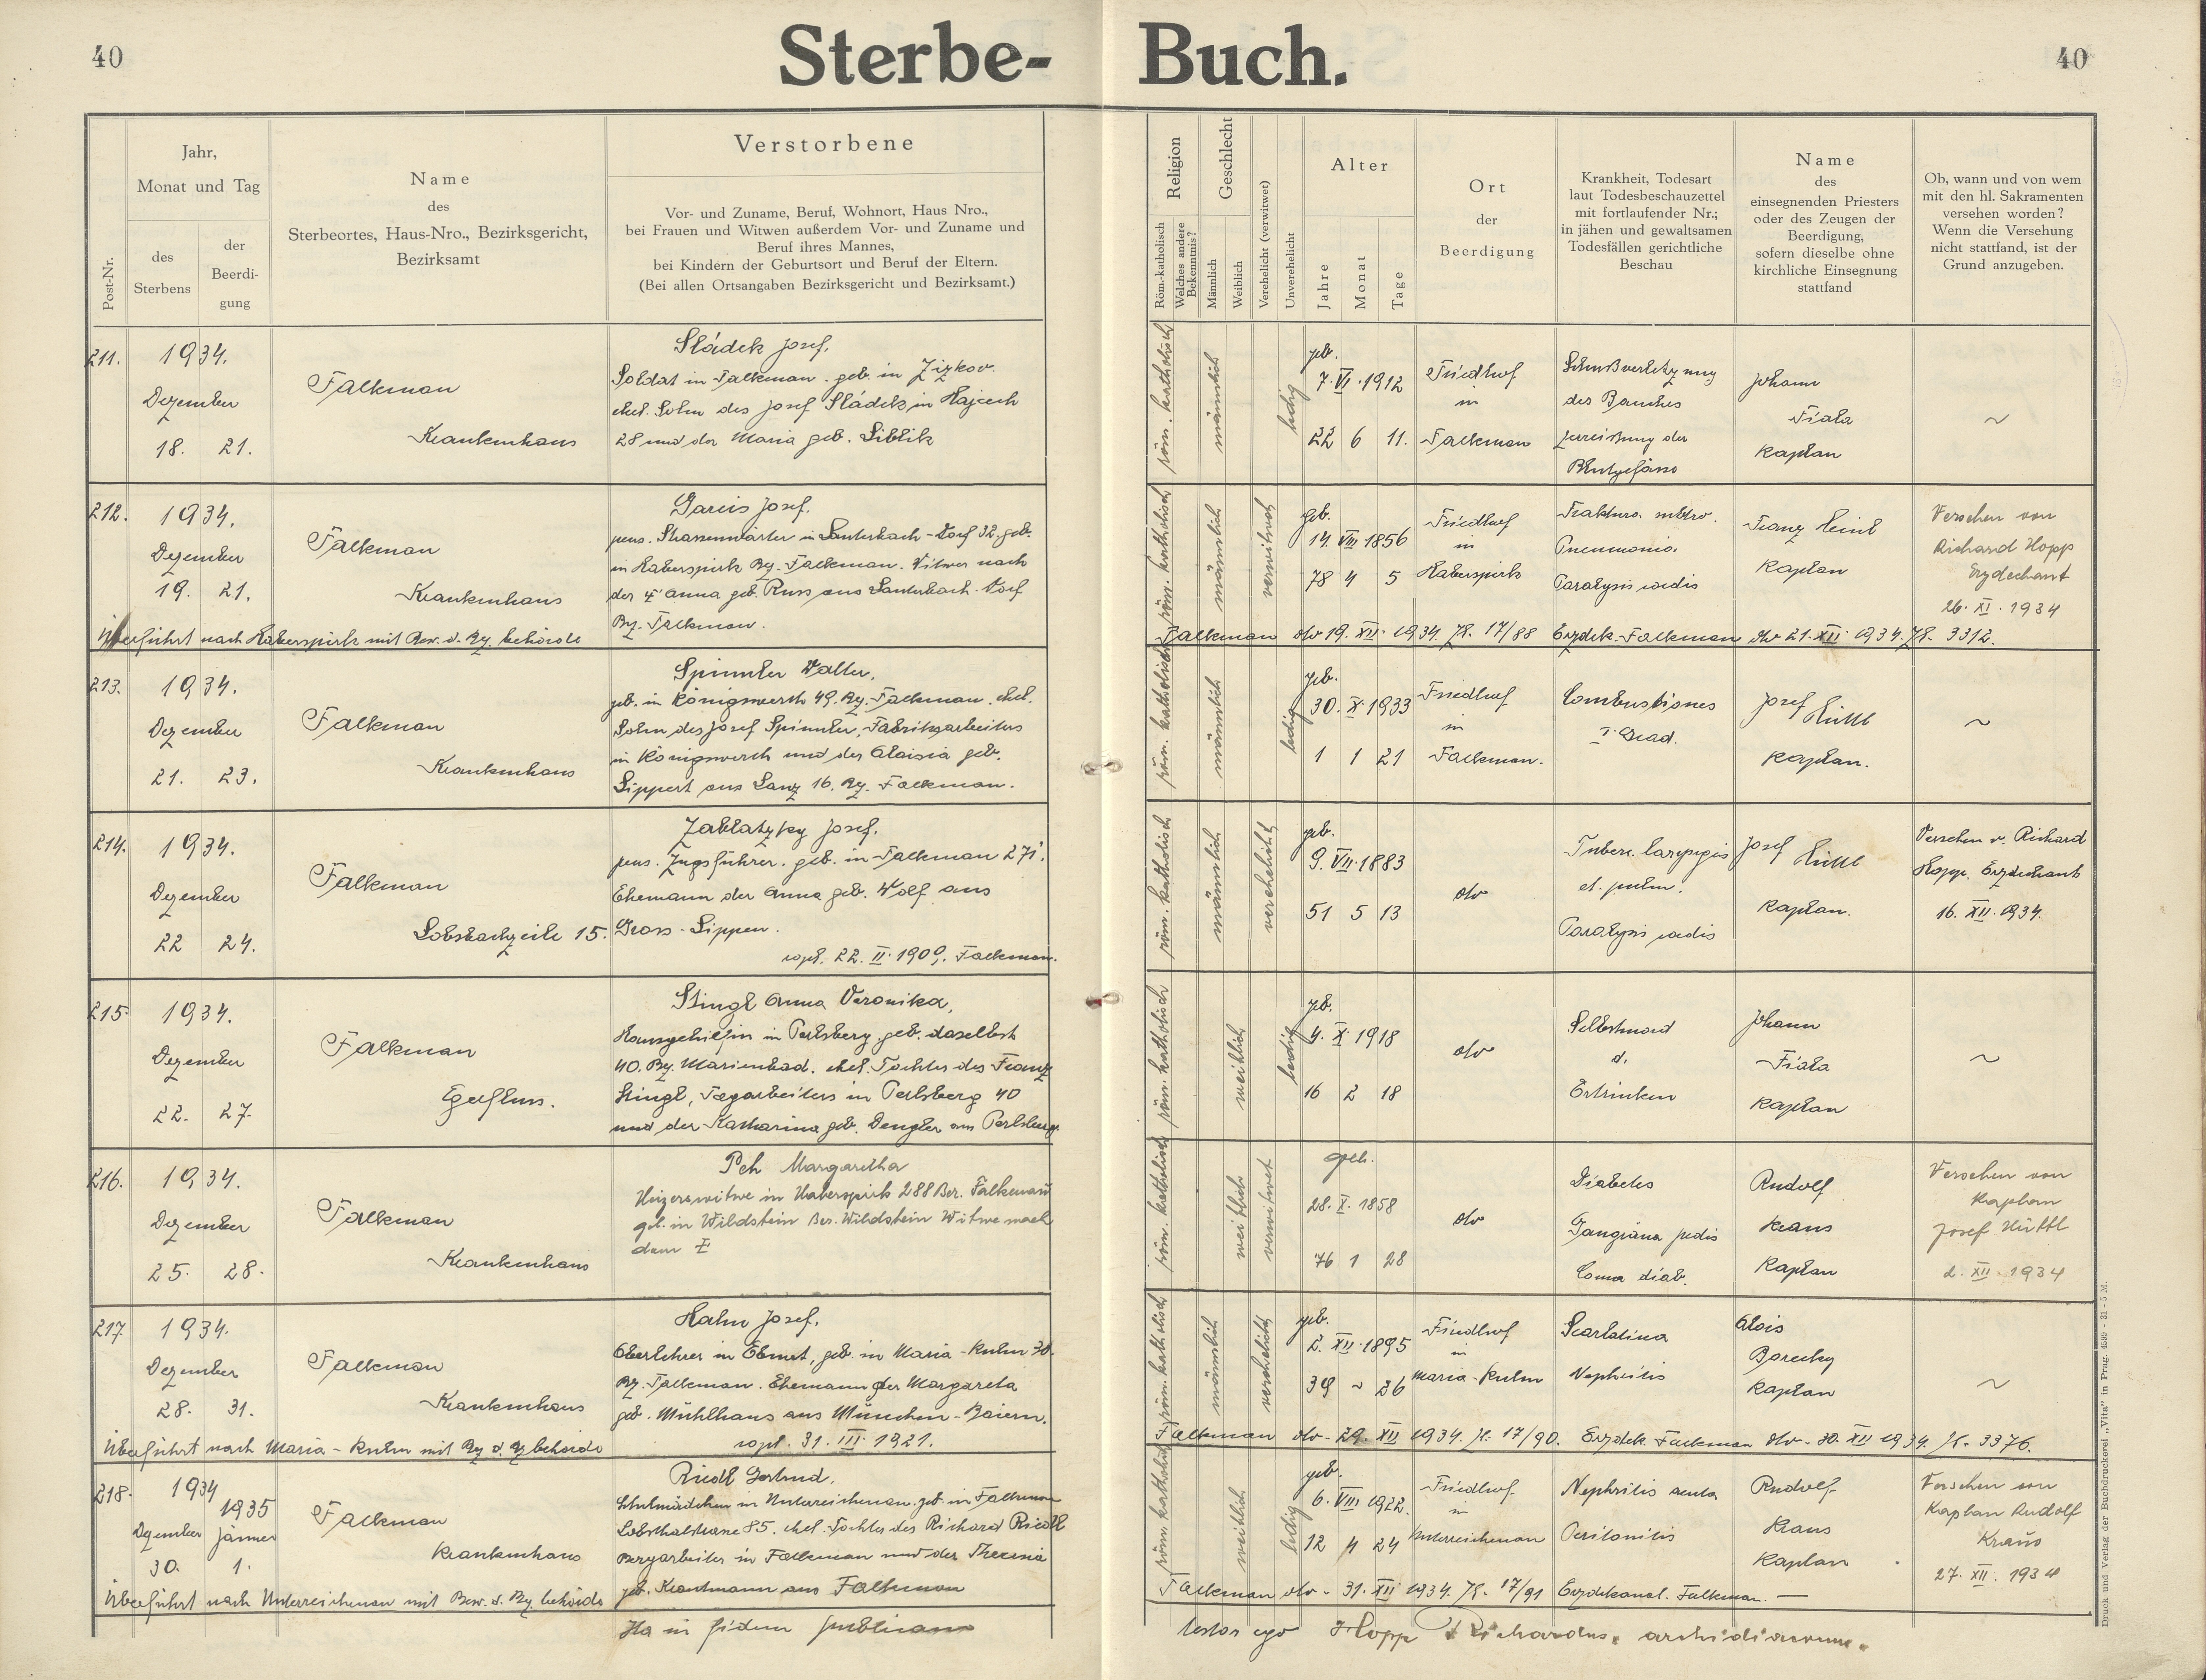 40
Sterbe-Buch.
40
Post-Nr.
Jahr,
Monat und Tag
des
Sterbens
der
Beerdi-
gung
Name
des
Sterbeortes, Haus-Nro., Bezirksgericht,
Bezirksamt
Verstorbene
Vor- und Zuname, Beruf, Wohnort, Haus Nro.,
bei Frauen und Witwen außerdem Vor- und Zuname und
Beruf ihres Mannes,
bei Kindern der Geburtsort und Beruf der Eltern.
(Bei allen Ortsangaben Bezirksgericht und Bezirksamt.)
Religion
Röm.-katholisch
Welches andere
Bekenntnis?
Geschlecht
Männlich
Weiblich
Verehelicht (verwitwet)
Unverehelicht
Alter
Jahre
Monat
Tage
Ort
der
Beerdigung
Krankheit, Todesart
laut Todesbeschauzettel
mit fortlaufender Nr.;
in jähen und gewaltsamen
Todesfällen gerichtliche
Beschau
Name
des
einsegnenden Priesters
oder des Zeugen der
Beerdigung,
sofern dieselbe ohne
kirchliche Einsegnung
stattfand
Ob, wann und von wem
mit den hl. Sakramenten
versehen worden?
Wenn die Versehung
nicht stattfand, ist der
Grund anzugeben.
211.
1934.
Dezember
18. 21.
Falkenau
Krankenhaus
Sládek Josef,
Soldat in Falkenau. geb. in Žižkov.
ehel. Sohn des Josef Sládek in
28 und der Maria geb.
röm. katholisch
männlich
ledig
geb.
7. VI. 1912
22 6 11.
Friedhof
in
Falkenau
Schußverletzung
des Bauches
Zerreißung der
Blutgefässe
Johann
Fiala
Kaplan
~
212.
1934.
Dezember
19. 21.
Falkenau
Krankenhaus
Gareis Josef.
pens. Strassenwärter in Lauterbach-Dorf 32, geb.
in Haberspirk Bz. Falkenau. Witwer nach
der † Anna geb. Russ aus Lauterbach-Dorf
Bz. Falkenau.
röm. katholisch
männlich
verwitwet
geb.
14. VIII 1856
78 4 5
Friedhof
in
Haberspirk
Pneumonia.
Paralysis cordis
Franz
Kaplan
Versehen von
Richard Hopp
Erzdechant
26. XI. 1934
Überführt nach Haberspirk mit Bew. d. Bz. behörde
Falkenau dto 19. XII. 1934. Zl. 17/88 Erzdek. Falkenau dto 21. XII. 1934. Zl. 3312.
213.
1934.
Dezember
21. 23.
Falkenau
Krankenhaus
Spinnler Walter,
geb. in Königswerth 49. Bz. Falkenau. ehel.
Sohn des Josef Spinnler, Fabriksarbeiters
in Königswerth und der Aloisia geb.
Lippert aus Lanz 16. Bz. Falkenau.
röm. katholisch
männlich
ledig
geb.
30. X. 1933
1 1 21
Friedhof
in
Falkenau.
Combustiones
Grad.
Josef Hüttl
Kaplan.
~
214.
1934.
Dezember
22 24.
Falkenau
Lobsbachzeile 15.
Zablatzky Josef.
pens. Zugsführer. geb. in Falkenau 271.
Ehemann der Anna geb. Wolf aus
Gross-Sippen.
copl. 22. II. 1909. Falkenau.
röm. katholisch
männlich
verehelicht
geb.
9. VII. 1883
51 5 13
dto
Tuberc. laryngis
et. pulm.
Paralysis cordis
Josef Hüttl
Kaplan.
Versehen v. Richard
Hopp. Erzdechant
16. XII. 1934.
215.
1934.
Dezember
22. 27.
Falkenau
Egerfluss.
Stingl Anna Veronika,
Hausgehilfin in Perlsberg, geb. daselbst
40. Bz. Marienbad. ehel. Tochter des Franz
Stingl, Tagarbeiters in Perlsberg 40
und der Katharina geb. Dengler aus Perlsberg.
röm. katholisch
weiblich
ledig
geb.
4. X. 1918
16 2 18
dto
Selbstmord
d.
Ertrinken
Johann
Fiala
Kaplan
~
216.
1934.
Dezember
25. 28.
Falkenau
Krankenhaus
Peh Margaretha
Heizerswitwe in Haberspirk 288 Bez. Falkenau
geb. in Wildstein Bez. Wildstein Witwe nach
dem †
röm. katholisch
weiblich
verwitwet
geb.
28. X. 1858
76 1 28
dto
Diabetes
Gangräna pedis
Coma diab.
Rudolf
Kraus
Kaplan
Versehen von
Kaplan
Josef Hüttl
2. XII. 1934
217.
1934.
Dezember
28. 31.
Falkenau
Krankenhaus
Hahn Josef,
Oberlehrer in Ebmet, geb. in Maria-Kulm 30.
Bz. Falkenau. Ehemann der Margareta
geb. Mühlhaus aus München-Baiern.
copl. 31. III. 1921.
röm. katholisch
männlich
verehelicht
geb.
2. XII. 1895
39 ~ 26
Friedhof
in
Maria-Kulm
Scarlatina
Nephritis
Alois
Borecky
Kaplan
~
Überführt nach Maria-Kulm mit Bz. d. Bz behörde
Falkenau dto - 29. XII 1934. Zl. 17/90. Erzdek. Falkenau dto - 30. XII 1934. Zl. 3376.
218.
1934
1935
Dezember Jänner
30. 1.
Falkenau
Krankenhaus
Riedl Gertrud,
Schulmädchen in Unterreichenau. geb. in Falkenau
85. ehel. Tochter des Richard Riedl
Bergarbeiter in Falkenau und der Theresia
geb. Krautmann aus Falkenau
röm. katholisch
weiblich
ledig
geb.
6. VIII 1922.
12 4 24
Friedhof
in
Unterreichenau
Nephritis acuta
Peritonitis
Rudolf
Kraus
Kaplan
Versehen von
Kaplan Rudolf
Kraus
27. XII. 1934
Überführt nach Unterreichenau mit Bew. d. Bz. behörde
Falkenau dto - 31. XII 1934. Zl. 17/91 Erzdekanat. Falkenau. —
Ita in fidem publicam
testor ego Hopp Richardus, archidiaconus.
Druck und Verlag der Buchdruckerei „Vita" in Prag. 4599 - 31 - 5 M.